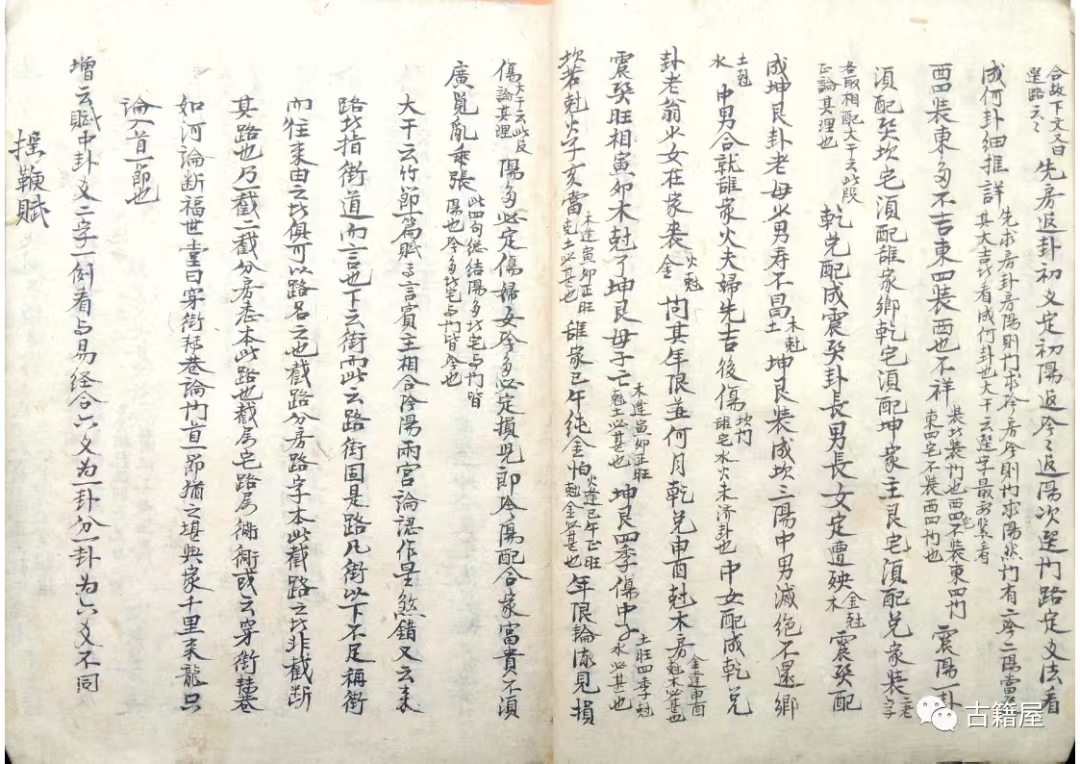 合故下文又曰選路云云 先房返卦初爻定初陽返陰陰返陽次選門路定爻法看
成何卦細推詳 先求房卦房陽則門求陰房陰則門求陽然門有二陰二陽當看其大吉者看成何卦也大干云選字最要緊
西四裝東多不吉東四裝西也不祥 裝坎裝門也西四不裝東四門東四宅不裝西四門也 震陽卦
須配巽坎宅須配離家鄉乾宅須配坤家主艮宅須配兌家裝 二老字
各取相配大干云此段正論其理也 乾兌配成震巽卦長男長女定遭殃 金尅木 震巽配
成坤艮卦老母少男壽不昌 木尅土 坤艮裝成坎三陽中男滅絕不還鄉
土尅水 中男合就離家火夫婦先吉後傷 坎門離宅水火未濟卦也 中女配成乾兌
卦老翁少女在家丧 火尅金 問其年限並何月乾兌申酉尅木房 金逢申酉尅木必甚也
震巽旺相寅卯木尅了坤艮母子亡 木逢寅卯正旺尅土必甚也 坤艮四季傷中子 土旺四季尅水必甚也
坎若尅火子亥當 離家巳午純金怕 火逢巳午正旺尅金必甚也 年限輪流見損
傷 大干云此反論其理 陽多必定傷婦女陰多必定損兒郎陰陽配合家富貴不須
廣覓亂乖張 此四句總結陽多坎宅与門皆陽也陰多坎宅与門皆陰也
大干云竹節一篇賦多言賓主相合陰陽兩宮論認作星煞錯又云来
路坎指街道而言也下云街而此云路街固是路凡街以下不足稱街
而往来由之坎俱可以路名之也截路分房路字本此截路之坎非截斷
其路也乃一截一截分房志本此路也截屬宅路屬衚衕或云穿街越巷
如河論断福世堂曰穿街越巷論門首一節猶之堪輿家千里来龍只
論一首一節也
增云賦中卦爻二字一例看与易经合六爻为一卦分一卦为六爻不同
撰鞭賦
古籍屋